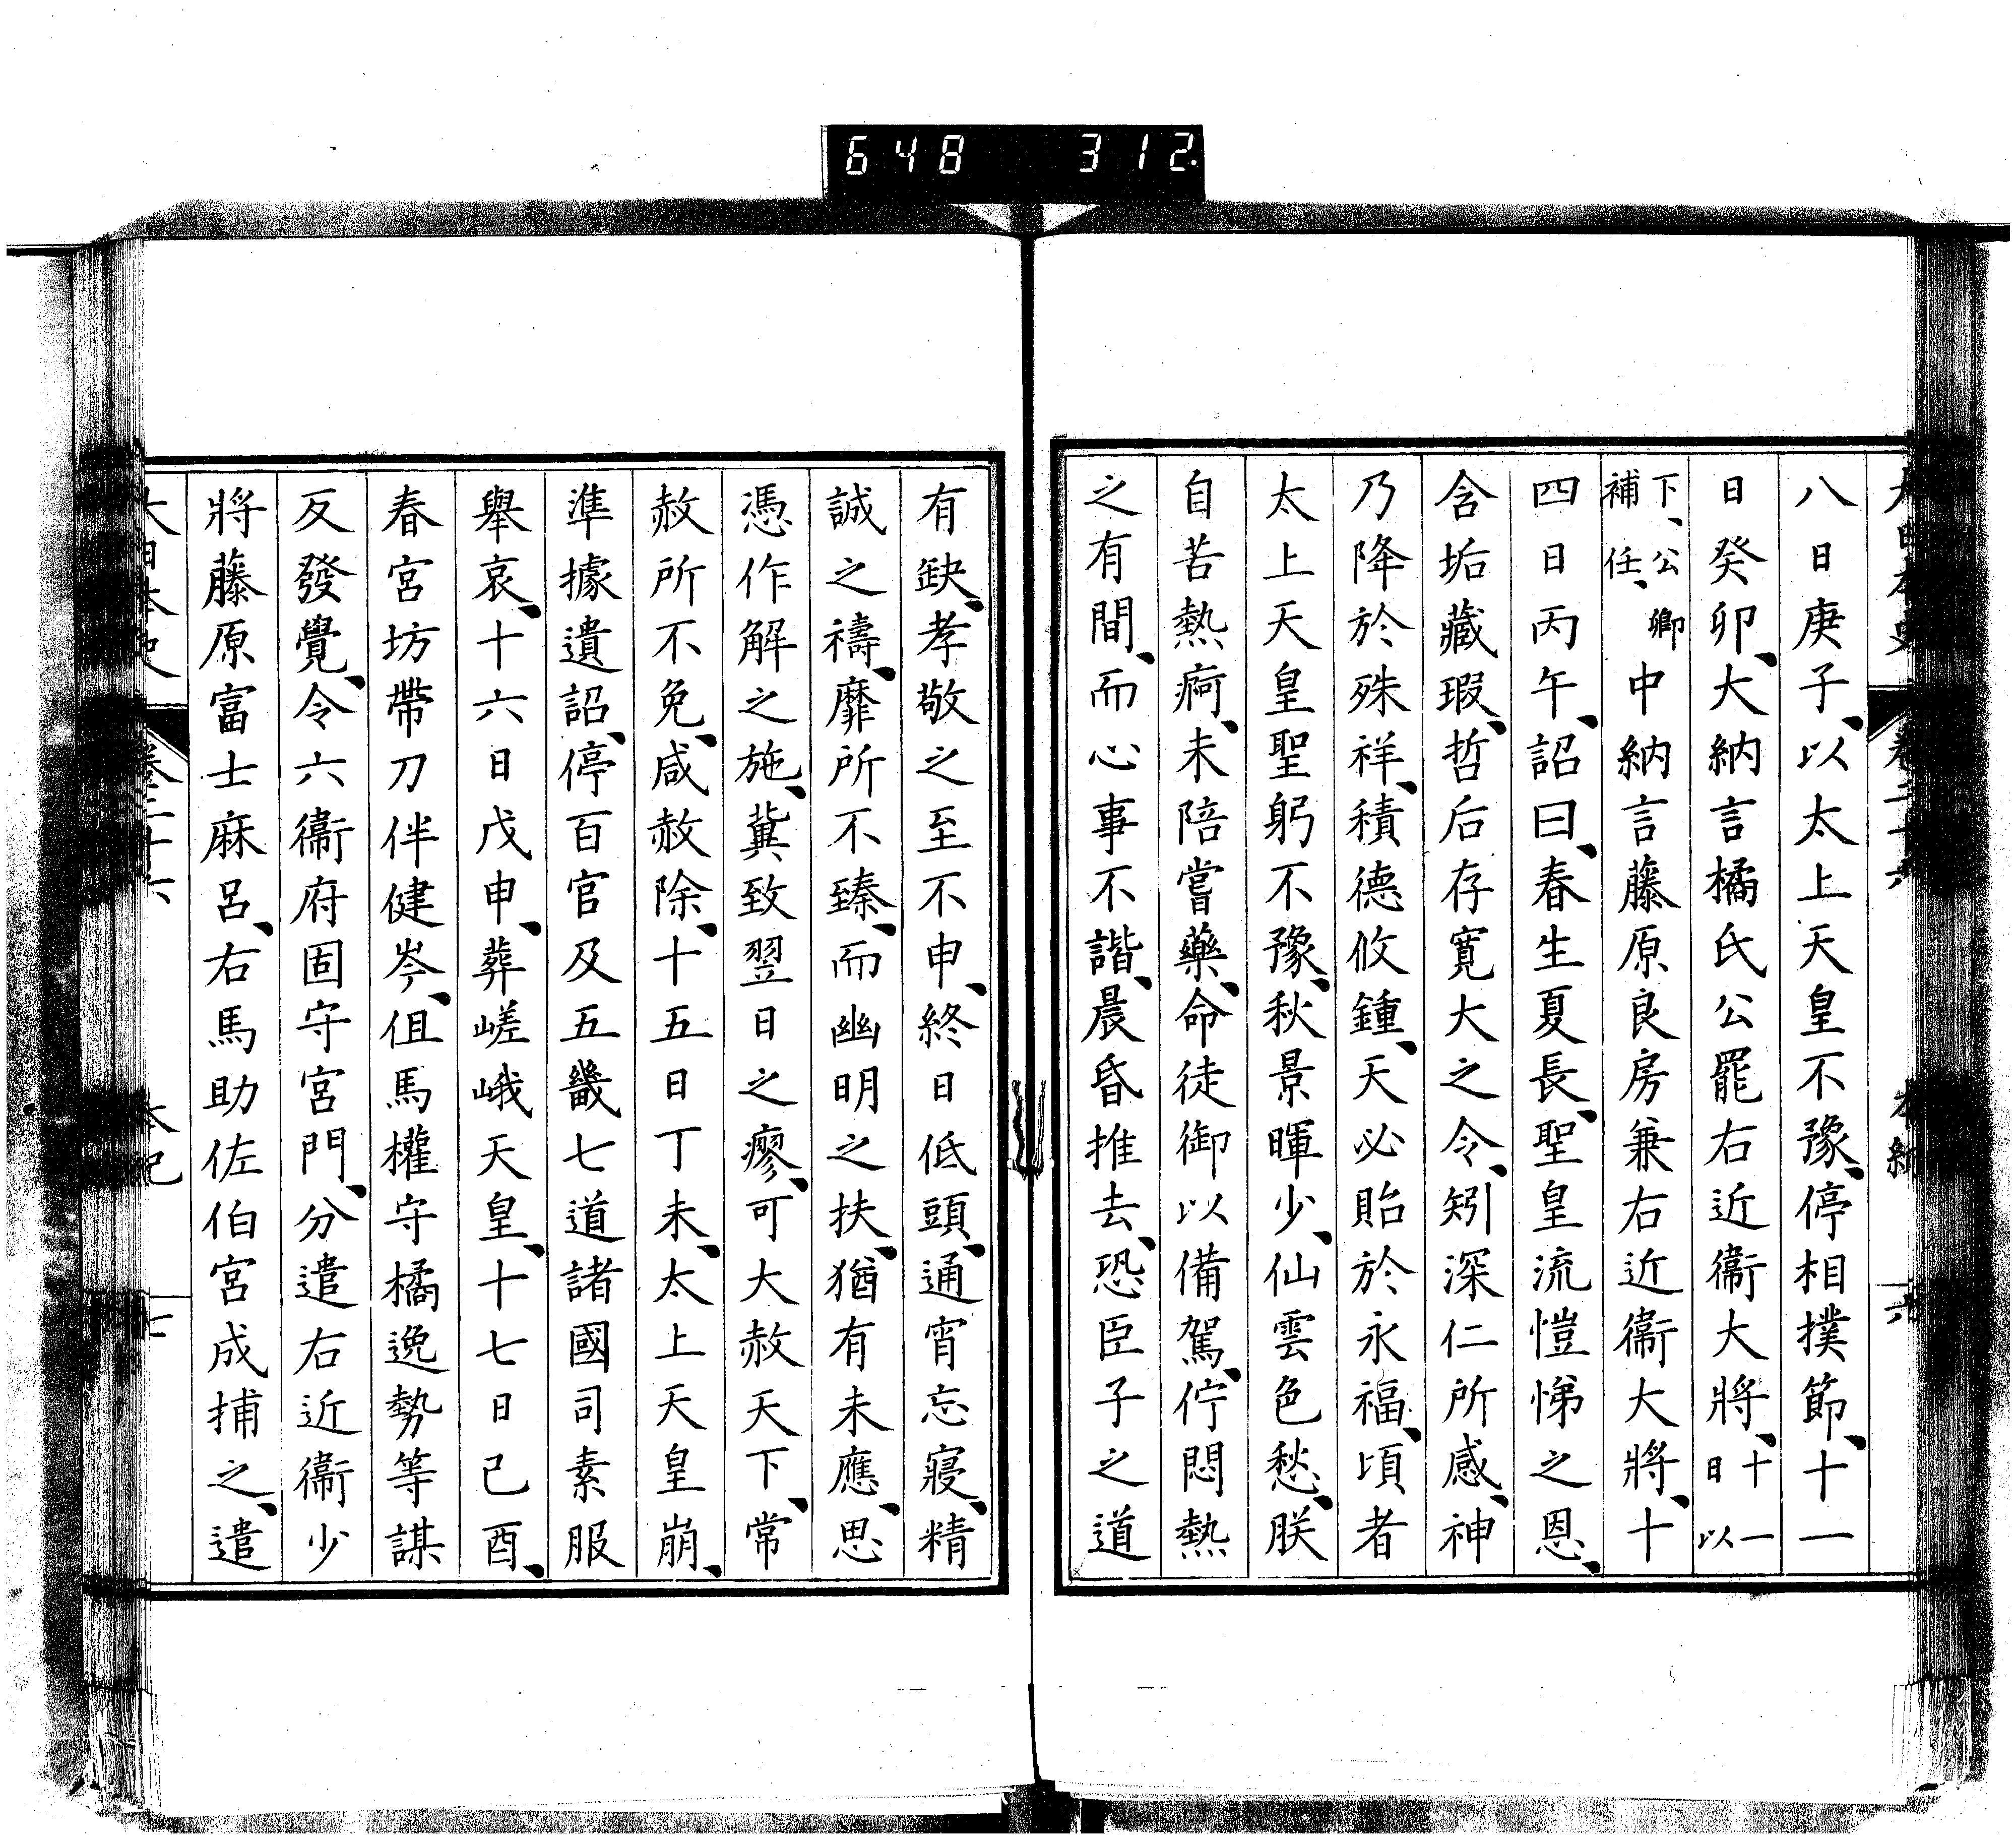 648 312
八日庚子、以太上天皇不豫、停相撲節、十一
日癸卯、大納言橘氏公罷右近衞大將、十一日以
下、公卿補任、中納言藤原良房兼右近衞大將、十
四日丙午、詔曰、春生夏長、聖皇流愷悌之恩、
含垢藏瑕、哲后存寛大之令、矧深仁所感、神
乃降於殊祥、積德攸鍾、天必貽於永福、頃者
太上天皇聖躬不豫、秋景暉少、仙雲色愁、朕
自苦熱痾、未陪嘗藥、命徒御以備駕、佇悶熱
之有間、而心事不諧、晨昏推去、恐臣子之道
有缺、孝敬之至不申、終日低頭、通宵忘寢、精
誠之禱、靡所不臻、而幽明之扶、猶有未應、思
憑作解之施、冀致翌日之瘳、可大赦天下、常
赦所不免、咸赦除、十五日丁未、太上天皇崩、
準據遺詔、停百官及五畿七道諸國司素服
舉哀、十六日戊申、葬嵯峨天皇、十七日己酉、
春宮坊帶刀伴健岑、伹馬權守橘逸勢等謀
反發覺、令六衞府固守宮門、分遣右近衞少
將藤原富士麻呂、右馬助佐伯宮成捕之、遣
大日本史 卷二十六 本紀 七